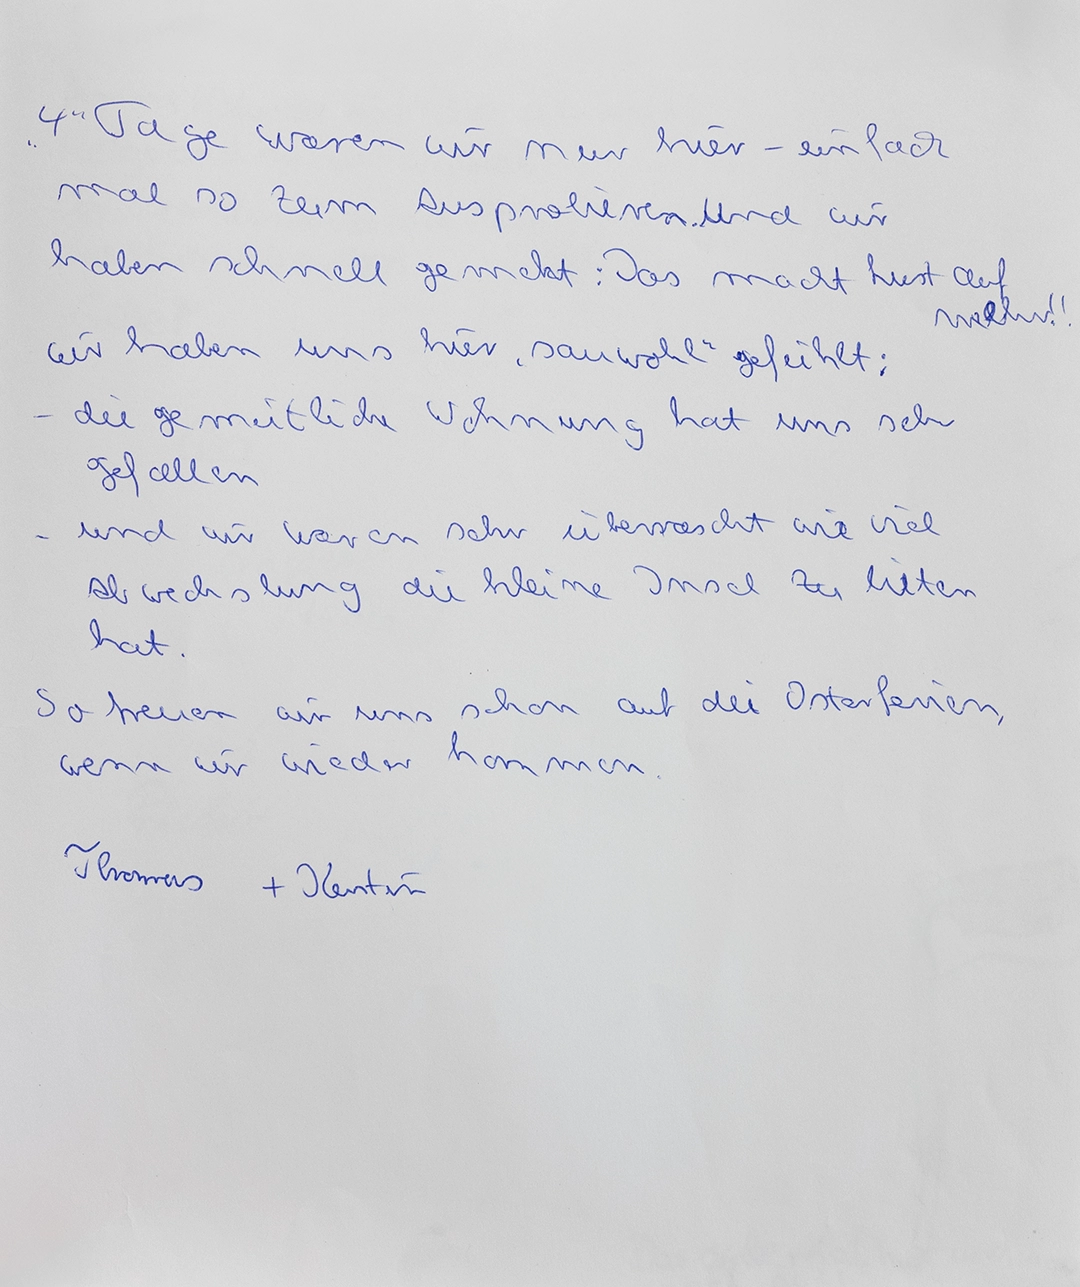 „4“ Tage waren wir nur hier – einfach
mal so zum Ausprobieren. Und wir
haben schnell gemerkt: Das macht Lust auf
mehr!!
wir haben uns hier „sauwohl“ gefühlt;
- die gemütliche Wohnung hat uns sehr
gefallen
- und wir waren sehr überrascht wie viel
Abwechslung die kleine Insel zu bieten
hat.
So freuen wir uns schon auf die Osterferien,
wenn wir wieder kommen.
Thomas + Kerstin